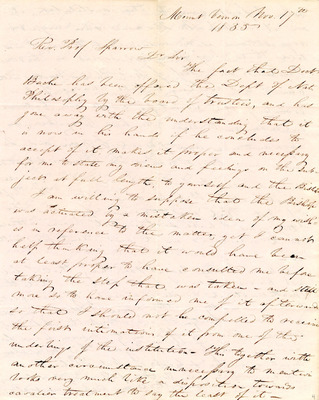 Mount Vernon Nov. 17th
1835
Rev. Prof Sparrow
Dr Sir,
The fact that Doct.
Bache has been offered the Dept of Nat.
Philosophy by the board of trustees, and has
gone away with the understanding that it
is now in his hands if he concludes to
accept of it makes it proper and necessary
for me to state my views and feelings on the sub-
ject at full length to yourself and the Bishop
I am willing to suppose that the Bishop
was activated by a mistaken idea of my wishes
is in reference to the matter, yet I cannot
help thinking that it would have been
at least proper to have consulted me before
taking the step that was taken – and still
more so to have informed me of it afterwards
so that I should not be compelled to receive
the first intimations of it from one of the
underlings of the institution – This together with
another circumstance unnecessary to mention
looks very much like a disposition towards
cavalier treatment to say the least of it –